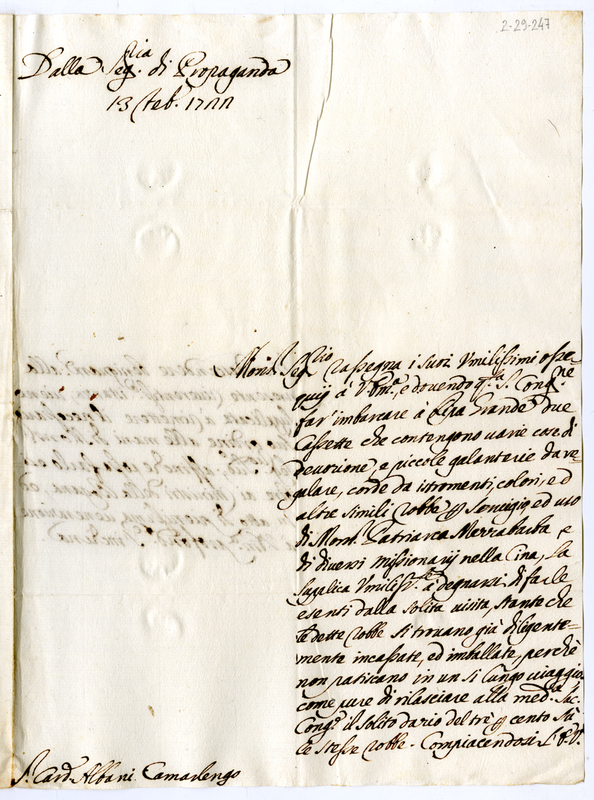 2-29-247
Dalla Seg.ria di Propaganda
13 Feb. 1722
Mons.r Seg.rio rassegna i suoi Umilissimi osse-
quij à V. Em.a, e dovendo q.ta S. Cong.ne
far' imbarcare à Ripa Grande due
Cassette che contengono varie cose di
devozione, e piccole galanterie da re-
galare, corde da istromenti, colori, ed
altre simili robbe p servigio, ed uso
di Mons.r Patriarca Mezzabarba e
di diversi Missionarij nella Cina, La
supplica Umilis.te à degnarsi di farle
esenti dalla solita visita, stante che
le dette robbe si trovano già diligente-
mente incassate, ed imballate, perchè
non patiscano in un si lungo viaggio
come pure di rilasciare alla med.a Sac.
Cong.e il solito dazio del trè p cento sù
le stesse robbe. Compiacendosi
S.r Card. Albani Camarlengo